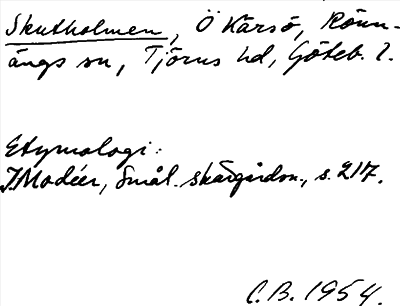 Skutholmen, Ö Kårsö, Rönn-
ängs sn, Tjörns hd, Göteb. l.
Etymologi:
I. Modéer, Smål. skärgårdsn., s. 217.
C.B. 1954.